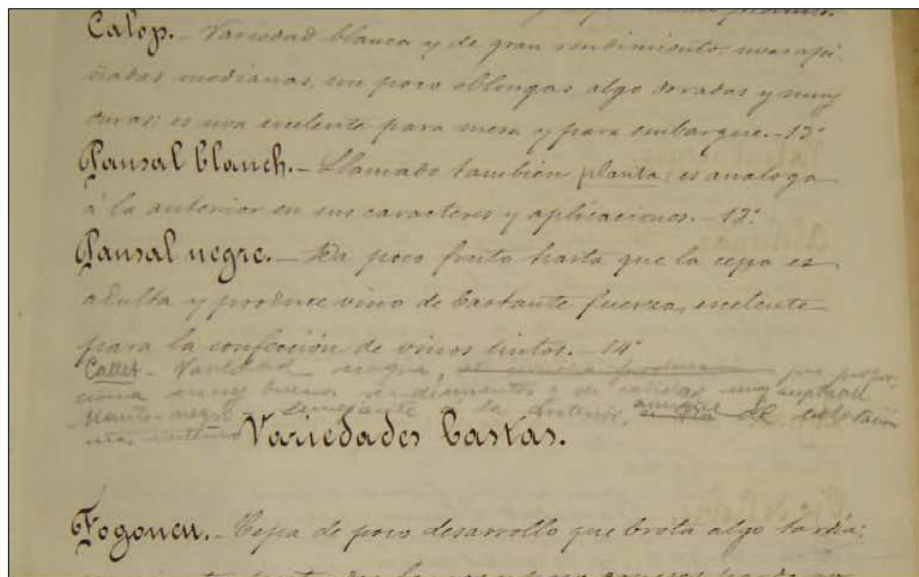 Calop. - Variedad blanca y de gran rendimiento: uvas api-
ñadas, medianas, un poco oblongas algo doradas y muy
duras: es uva exelente para mesa y para embarque. - 13°
Pansal blanch. - Llamado tambien planta: es analoga
á la anterior en sus caracteres y aplicaciones. - 12°
Pansal negre. - Da poco fruto hasta que la cepa es
adulta y produce vino de bastante fuerza, exelente
para la confección de vinos tintos. - 14°
Callet - Variedad negra, que propor-
ciona muy buen rendimiento y de calidad muy aceptable
Manto negro - Semejante a la anterior, aunque de coloración
más
Variedades bastas.
Fogoneu. - Cepa de poco desarrollo que brota algo tardía;